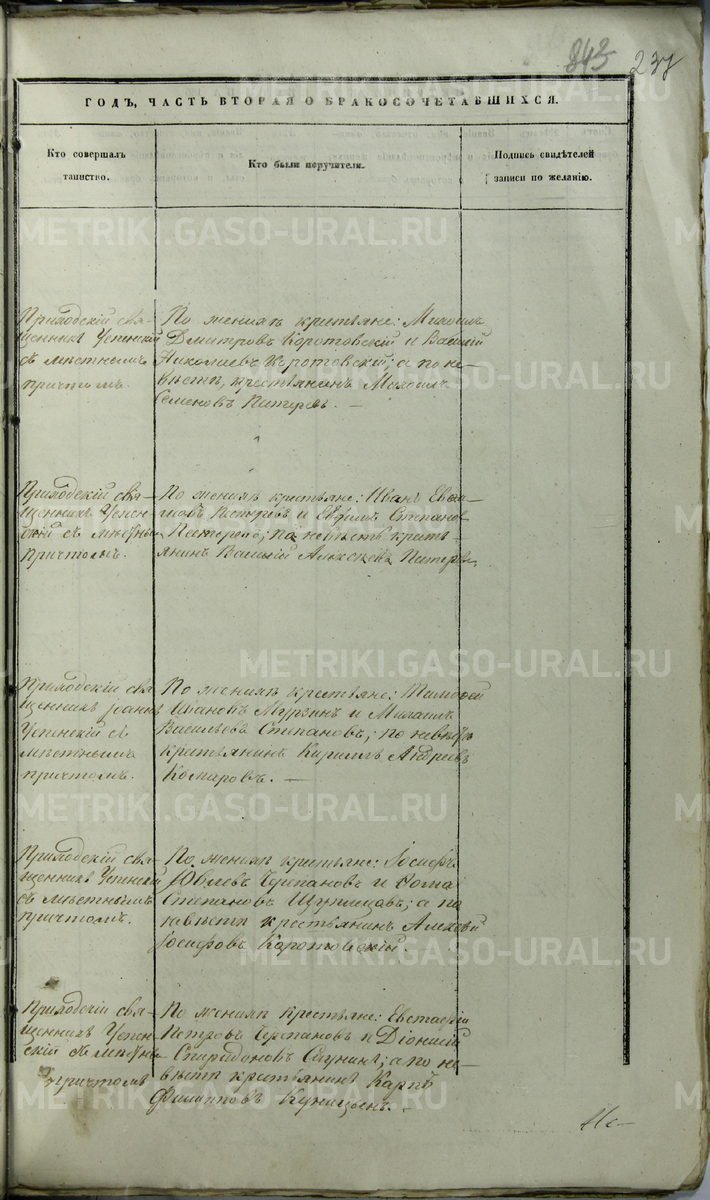 843
237
ГОДЪ, ЧАСТЬ ВТОРАЯ О БРАКОСОЧЕТАВШИХСЯ.
Кто совершалъ таинство.
Кто были поручители.
Подпись свидѣтелей записи по желанію.
METRIKI.GASO-URAL.RU
Приходскій свя-
щенникъ Успенскій
съ мѣстнымъ
причтомъ.
По женихѣ крестьяне: Михаилъ
Дмитровъ Коротовскій и Василій
Николаевъ Коротовскій; а по не-
вѣстѣ, крестьянинъ Михаилъ
Семеновъ Патеревъ. —
Приходскій свя-
щенникъ Успен-
скій съ мѣстнымъ
причтомъ.
По женихѣ крестьяне: Иванъ
и Ефимъ Степанов
по невѣстѣ кресть-
янинъ Василій Алексѣевъ
Приходскій свя-
щенникъ
Успенскій съ
мѣстнымъ
причтомъ.
По женихѣ крестьяне: Тимофей
Ивановъ Мурзинъ и Михаилъ
Васильевъ Степановъ; по невѣстѣ
крестьянинъ Кирилъ Андреевъ
Комаровъ. —
Приходскій свя-
щенникъ Успенскій
съ мѣстнымъ
причтомъ.
По женихѣ крестьяне: Іосифъ
Черепановъ и Фома
Степановъ а по
невѣстѣ крестьянинъ Алексѣй
Іосифовъ Коротовскій.
Приходскій свя-
щенникъ Успен-
скій съ мѣстны
причтомъ
По женихѣ крестьяне: Евстафій
Петровъ Черепановъ и Діонисій
Спиридоновъ а по не-
вѣстѣ крестьянинъ Карпъ
Филипповъ